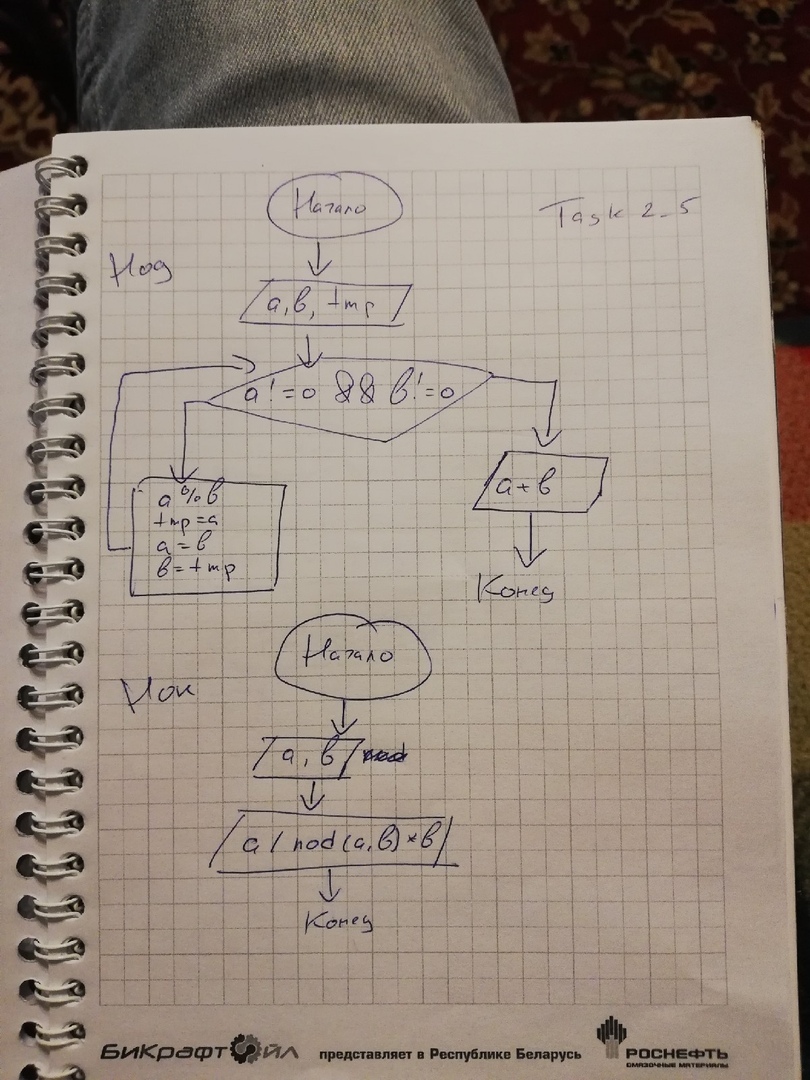 Начало
Task 2_5
Нод
a, b, tmp
a != 0 && b != 0
a % b
tmp = a
a = b
b = tmp
a + b
Конец
Начало
Нок
a, b
a / nod(a, b) * b
Конец
БиКрафтОйл представляет в Республике Беларусь РОСНЕФТЬ
СМАЗОЧНЫЕ МАТЕРИАЛЫ